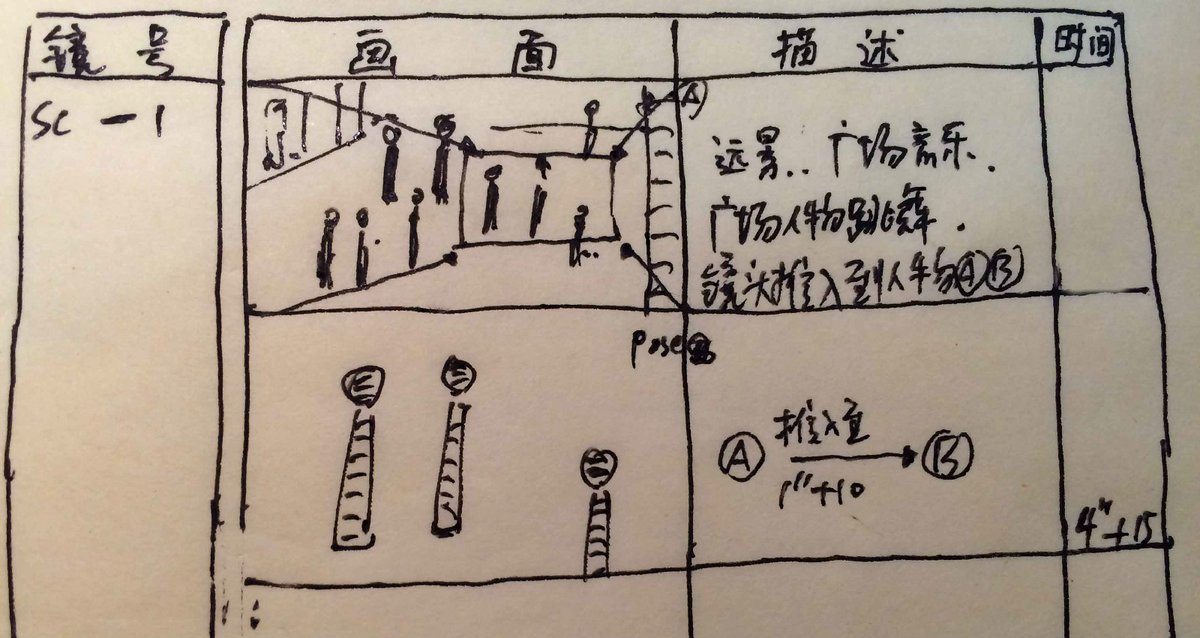 镜号 画面 描述 时间
SC-1
A
远景.. 广场音乐.
广场人物跳舞.
镜头推入至人物ⒶⒷ
Pose
Ⓐ 推入至 Ⓑ
1"+10
4"+15